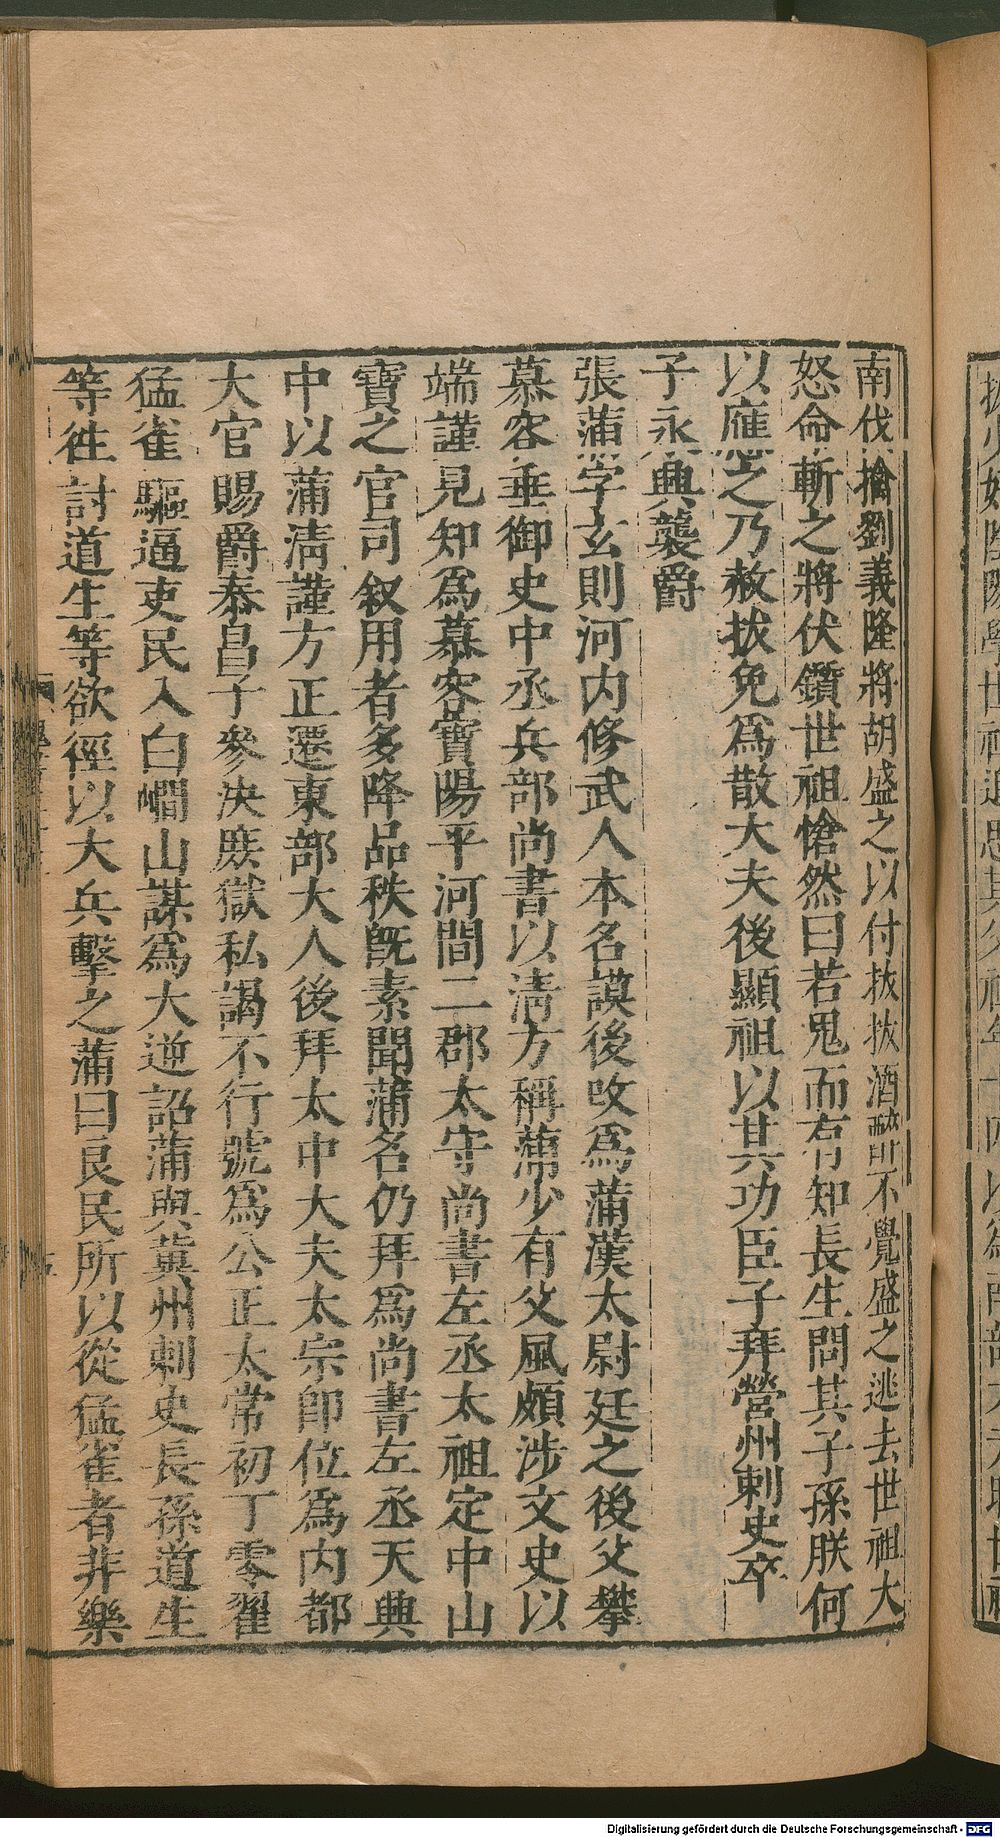 南伐擒劉義隆將胡盛之以付拔拔酒醉不覺盛之逃去世祖大
怒命斬之將伏鑕世祖愴然曰若鬼而有知長生問其子孫朕何
以應之乃赦拔免爲散大夫後顯祖以其功臣子拜營州刺史卒
子永興襲爵
張蒲字玄則河内修武人本名謨後改爲蒲漢太尉廷之後父攀
慕容垂御史中丞兵部尚書以清方稱蒲少有父風頗涉文史以
端謹見知爲慕容寶陽平河間二郡太守尚書左丞太祖定中山
寶之官司叙用者多降品秩既素聞蒲名仍拜爲尚書左丞天興
中以蒲清謹方正遷東部大人後拜太中大夫太宗即位爲内都
大官賜爵泰昌子參決庶獄私謁不行號爲公正太常初丁零翟
猛雀驅逼吏民入白㵎山謀爲大逆詔蒲與冀州刺史長孫道生
等徃討道生等欲徑以大兵擊之蒲曰良民所以從猛雀者非樂
Digitalisierung gefördert durch die Deutsche Forschungsgemeinschaft - DFG